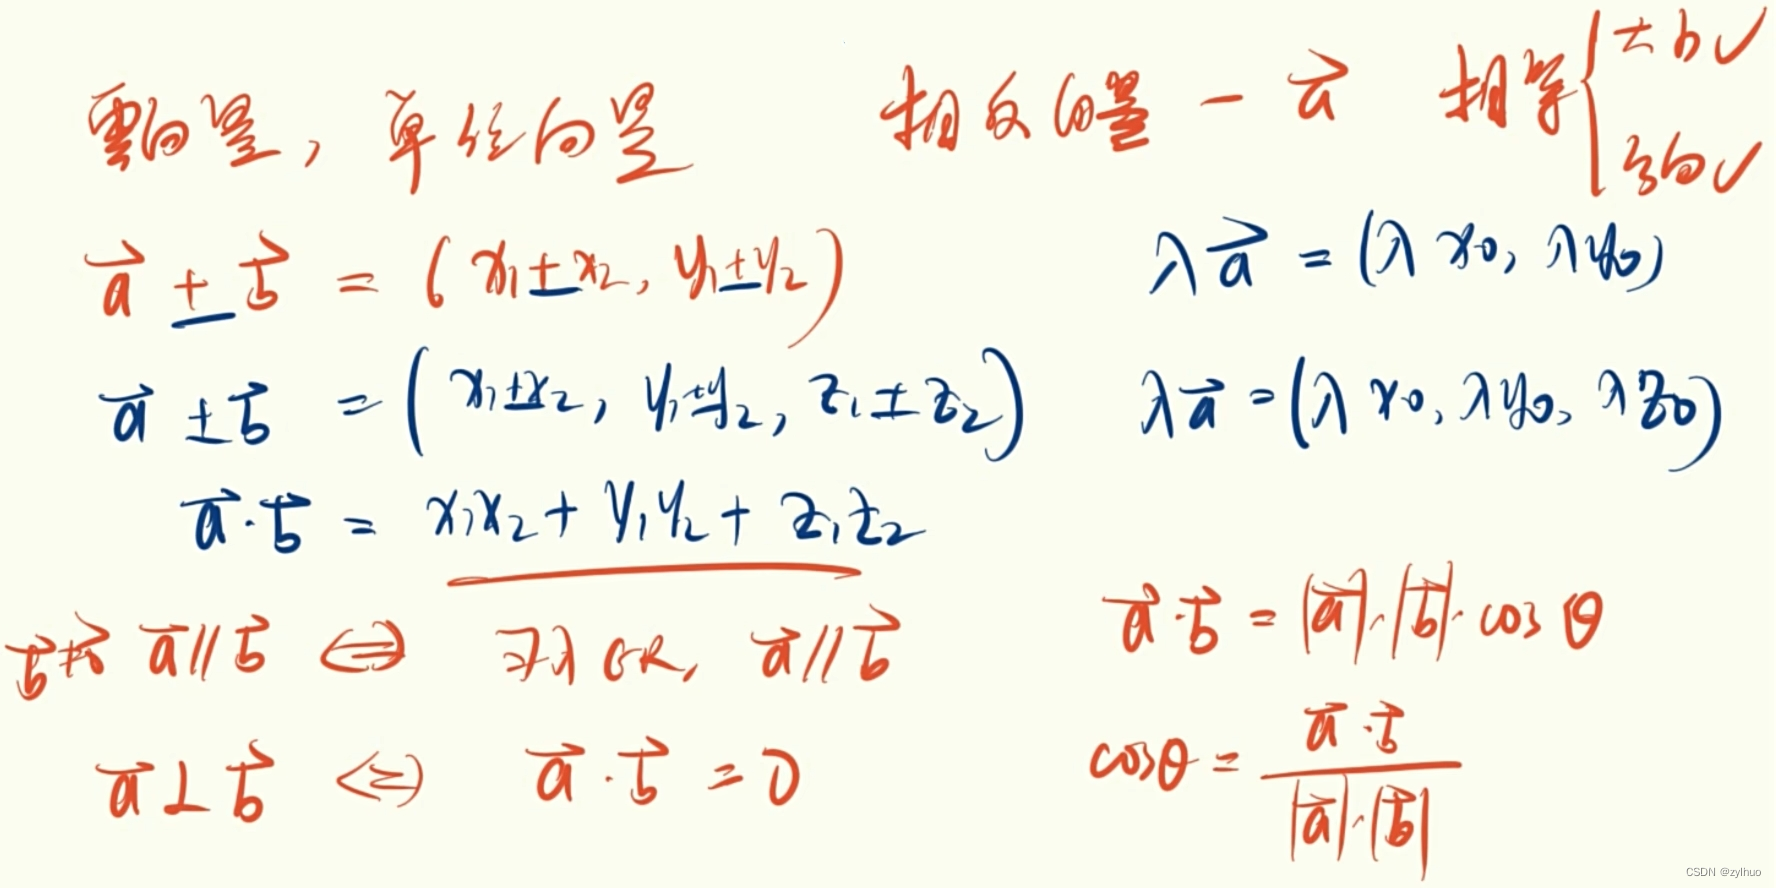 零向量，单位向量 相反向量 -a⃗ 相等 { 大小✓ 方向✓
a⃗ ± b⃗ = (x₁±x₂, y₁±y₂) λa⃗ = (λx₀, λy₀)
a⃗ ± b⃗ = (x₁±x₂, y₁±y₂, z₁±z₂) λa⃗ = (λx₀, λy₀, λz₀)
a⃗·b⃗ = x₁x₂ + y₁y₂ + z₁z₂
b⃗≠0⃗ a⃗∥b⃗ ⇔ ∃λ∈R, a⃗∥b⃗ a⃗·b⃗ = |a⃗|·|b⃗|·cosθ
a⃗⊥b⃗ ⇔ a⃗·b⃗ = 0 cosθ = a⃗·b⃗ / |a⃗|·|b⃗|
CSDN @zylhuo